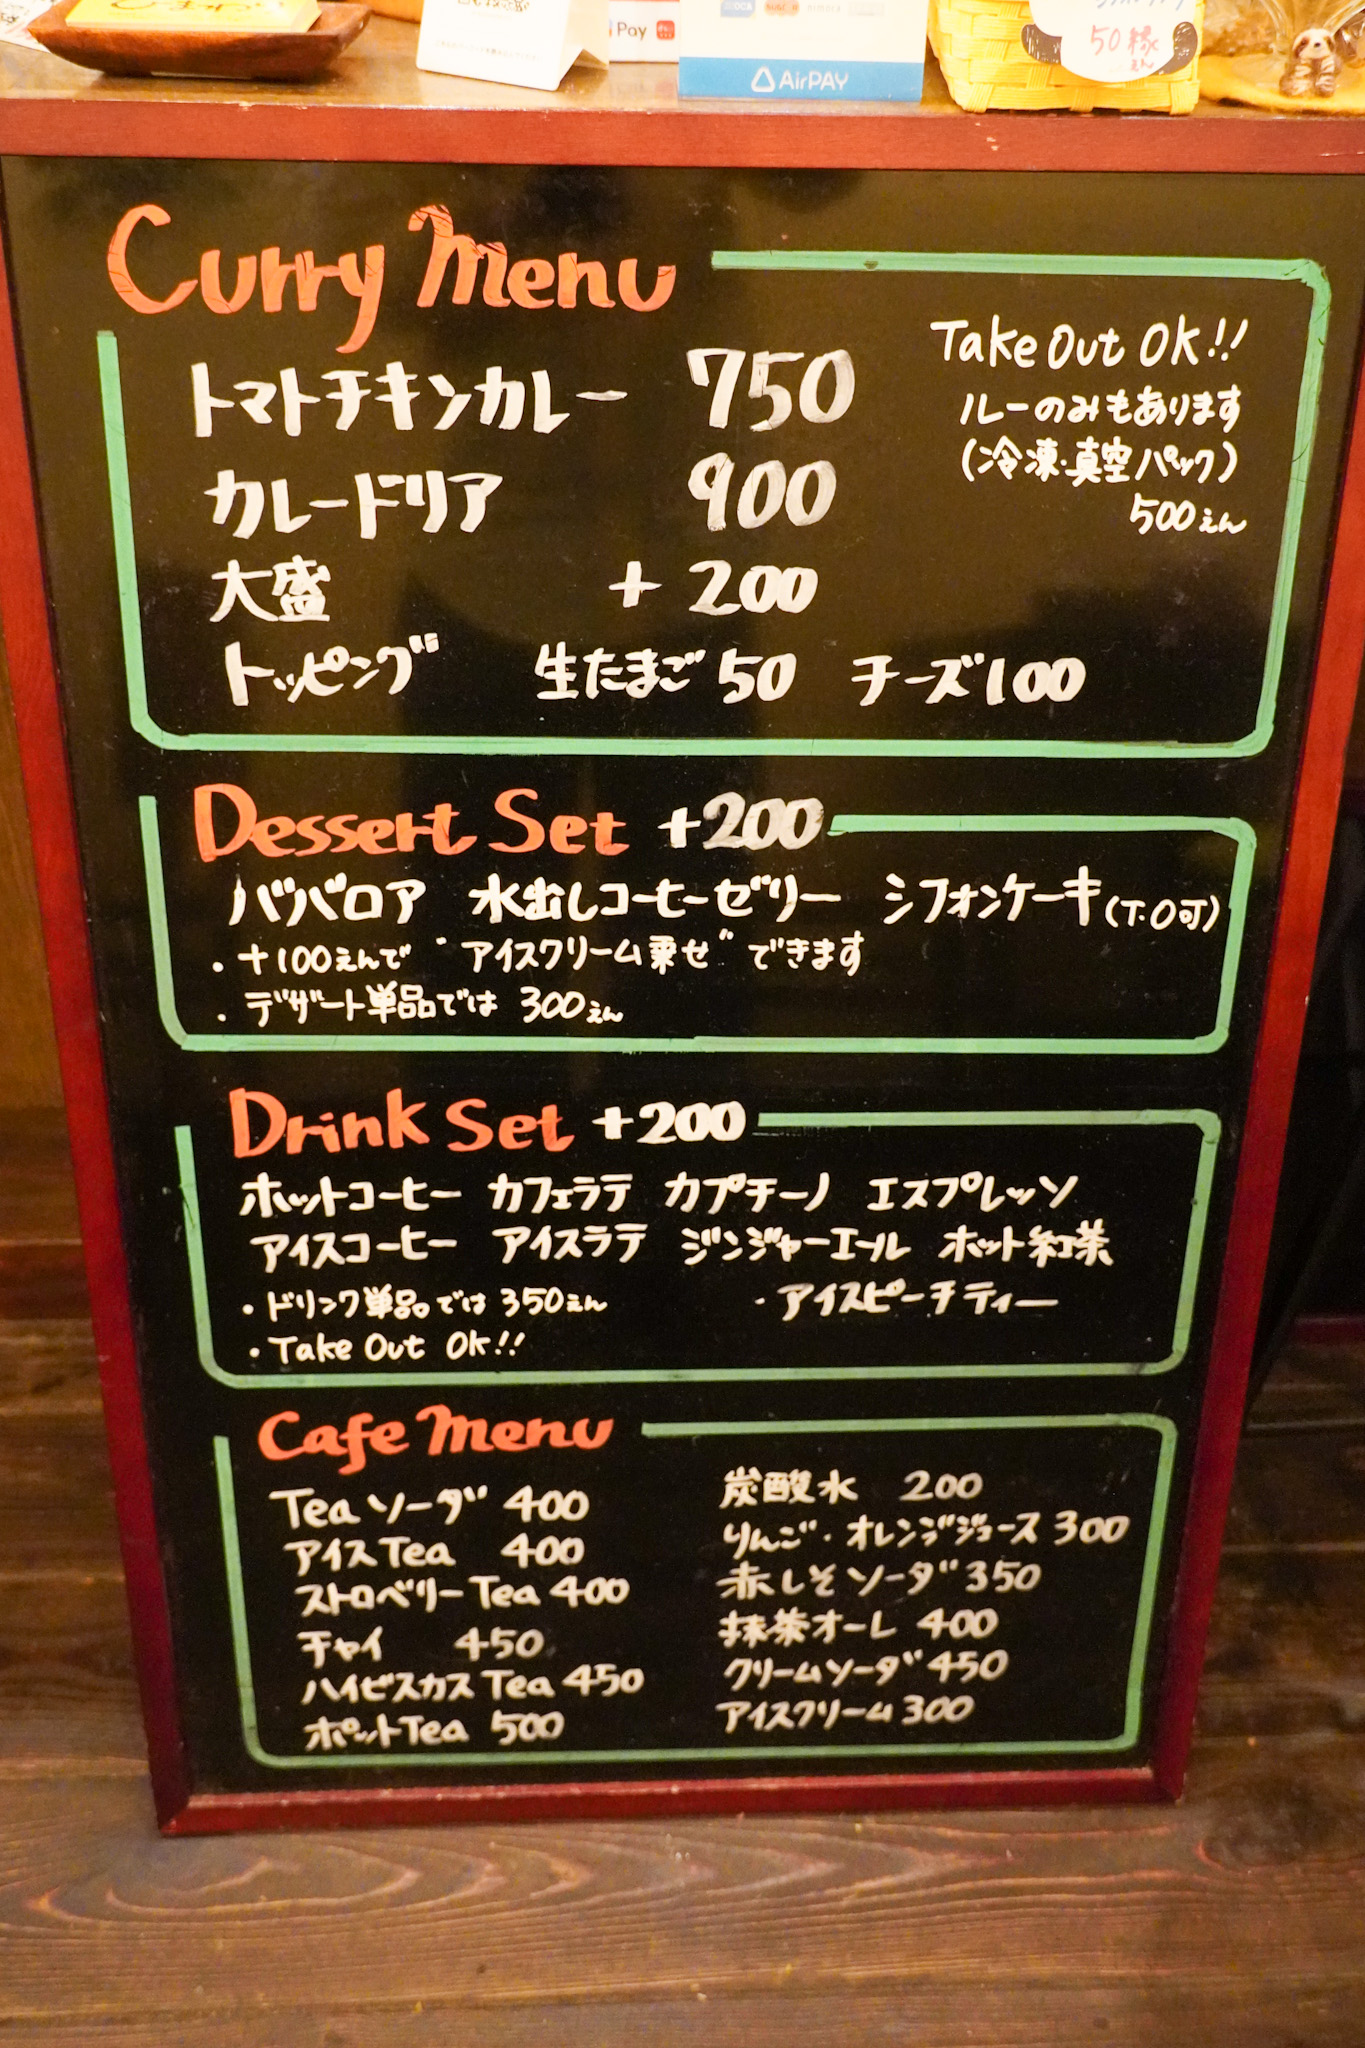 Pay
AirPAY
50縁
えん
Curry Menu
トマトチキンカレー 750
カレードリア 900
大盛 +200
トッピング 生たまご 50 チーズ 100
Take Out OK!!
ルーのみもあります
(冷凍・真空パック)
500えん
Dessert Set +200
ババロア 水出しコーヒーゼリー シフォンケーキ(T.O可)
・+100えんで "アイスクリーム乗せ" できます
・デザート単品では 300えん
Drink Set +200
ホットコーヒー カフェラテ カプチーノ エスプレッソ
アイスコーヒー アイスラテ ジンジャーエール ホット紅茶
・ドリンク単品では 350えん ・アイスピーチティー
・Take Out OK!!
Cafe Menu
Tea ソーダ 400
アイス Tea 400
ストロベリー Tea 400
チャイ 450
ハイビスカス Tea 450
ポット Tea 500
炭酸水 200
りんご・オレンジジュース 300
赤しそソーダ 350
抹茶オーレ 400
クリームソーダ 450
アイスクリーム 300